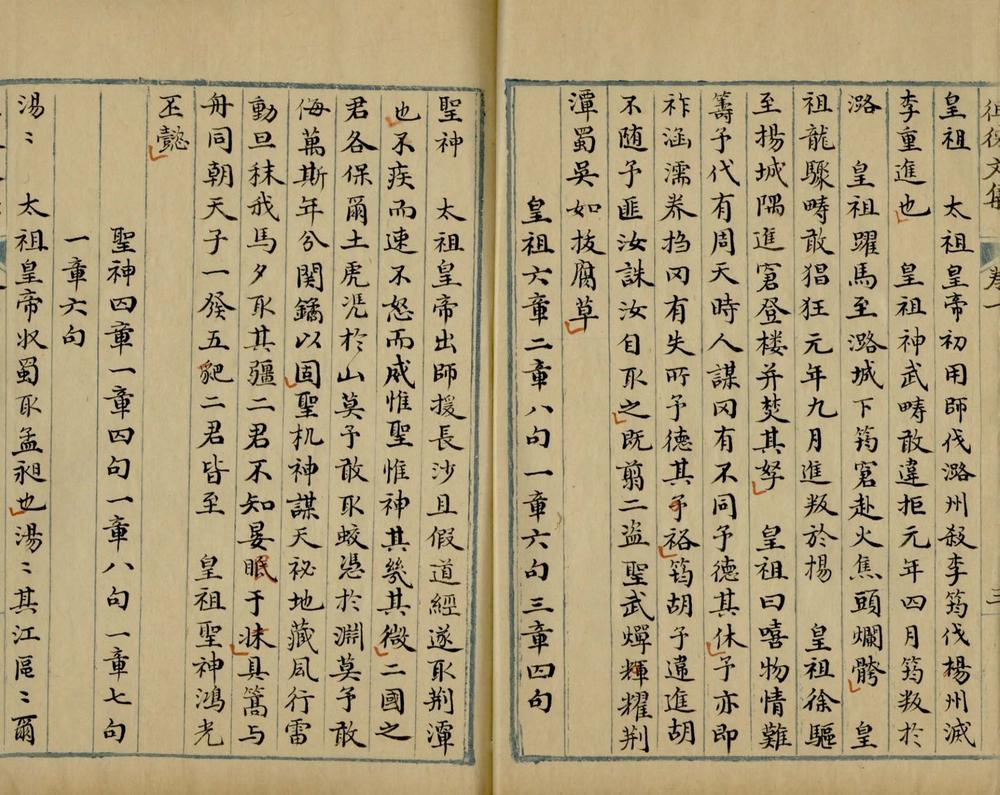 徂徠文集　卷一　三
皇祖　太祖皇帝初用師伐潞州殺李筠伐楊州滅
李重進也　皇祖神武疇敢違拒元年四月筠叛於
潞　皇祖躍馬至潞城下筠窘赴火焦頭爛髂　皇
祖龍驟疇敢猖狂元年九月進叛於揚　皇祖徐驅
至揚城隅進窘登楼并焚其孥　皇祖曰嘻物情難
籌予代有周天時人謀冈有不同予德其休予亦即
祚涵濡养㧮冈有失所予德其予裕筠胡予違進胡
不随予匪汝誅汝自取之既翦二盗聖武燀輝耀荆
潭蜀吳如拔腐草
皇祖六章二章八句一章六句三章四句
聖神　太祖皇帝出師援長沙且假道經遂取荆潭
也不疾而速不怒而威惟聖惟神其幾其微二國之
君各保爾土虎凭於山莫予敢取蛟憑於淵莫予敢
侮萬斯年兮関鐍以固聖机神謀天祕地藏風行雷
動旦秣我馬夕取其疆二君不知晏眠于牀具篙与
舟同朝天子一發五豝二君皆至　皇祖聖神鴻光
丕懿
聖神四章一章四句一章八句一章七句
一章六句
湯〻　太祖皇帝收蜀取孟昶也湯〻其江區〻爾